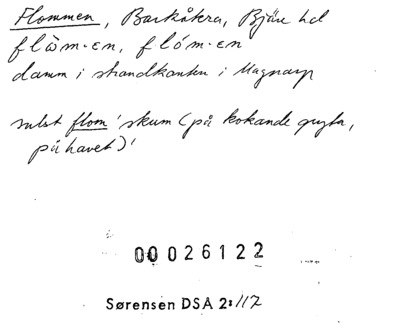 Flommen, Barkåkra, Bjäre hd
flòm·en, flóm·en
damm i strandkanten i Magnarp
subst flom 'skum (på kokande gryta,
på havet)'
00026122
Sørensen DSA 2:117